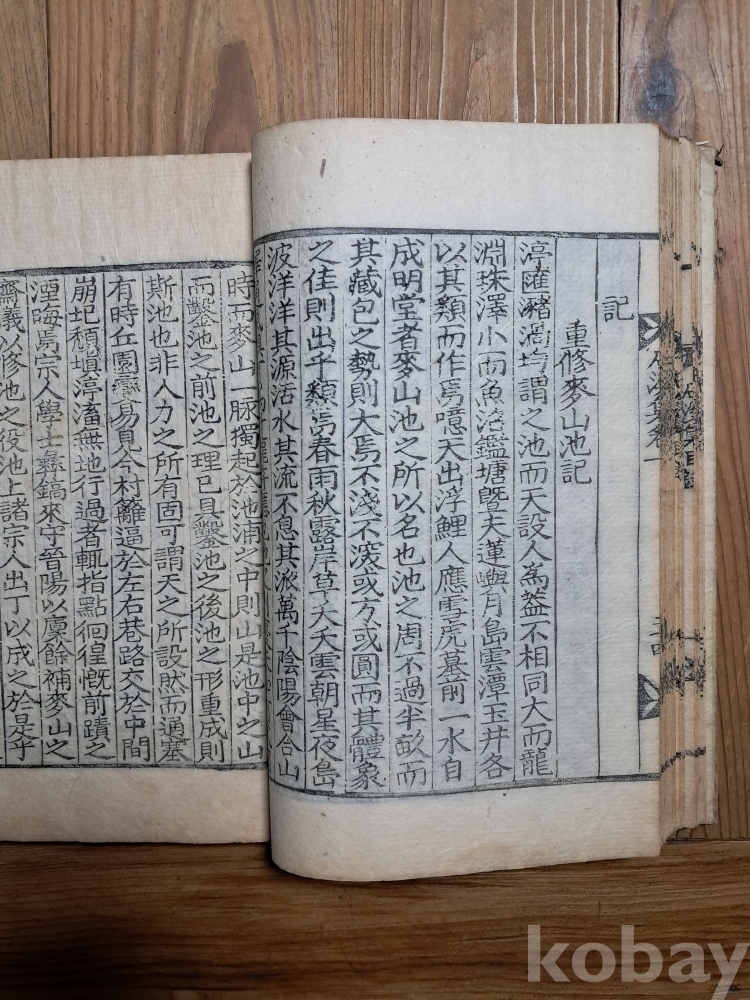 記
重修麥山池記
渟匯瀦渦均謂之池而天設人爲盖不相同大而龍
淵珠澤小而魚沼鑑塘曁夫蓮嶼月島雲潭玉井各
以其類而作焉噫天出浮鯉人應雩虎墓前一水自
成明堂者麥山池之所以名也池之周不過半畝而
其藏包之勢則大焉不淺不深或方或圓而其體象
之佳則出乎類焉春雨秋露岸草夭夭雲朝星夜島
波洋洋其源活水其流不息其派萬千陰陽會合山
時而麥山一脉獨起於池浦之中則山是池中之山
而鑿池之前池之理已具鑿池之後池之形重成則
斯池也非人力之所有固可謂天之所設然而通塞
有時丘園靈易見今村離逼於左右巷路交於中間
崩圮頹塡渟滀無地行過者輒指點徊徨慨前蹟之
湮晦焉宗人學士彝鎬來守晉陽以廩餘補麥山之
齋義以修池之役池上諸宗人出丁以成之於是乎
kobay